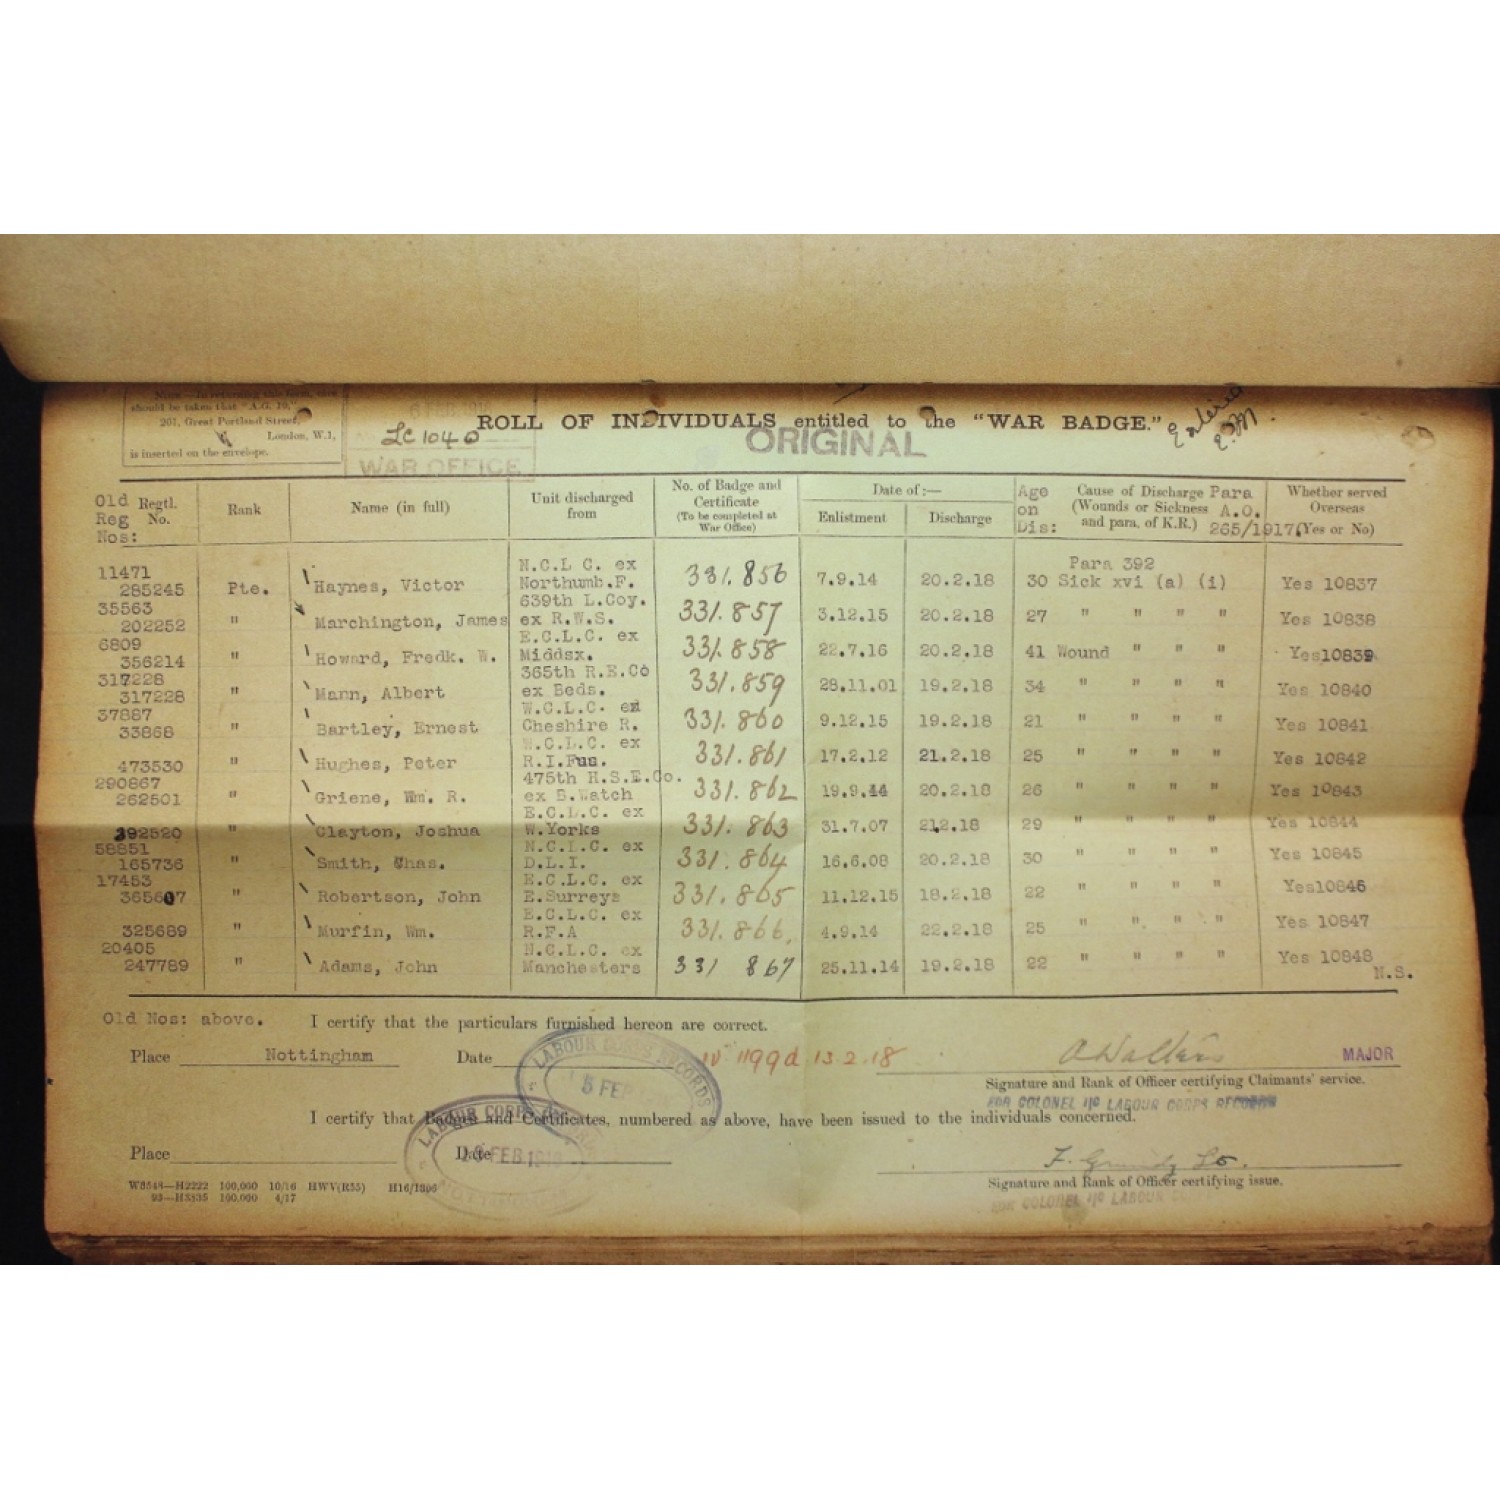 NOTE.—In returning this form, care
should be taken that "A.G. 10,"
201, Great Portland Street,
London, W.1,
is inserted on the envelope.
LC 1040
WAR OFFICE
ROLL OF INDIVIDUALS entitled to the "WAR BADGE."
ORIGINAL
Old Reg Nos: Regtl. No. Rank Name (in full) Unit discharged from No. of Badge and Certificate (To be completed at War Office) Date of:— Enlistment Discharge Age on Dis: Cause of Discharge (Wounds or Sickness and para. of K.R.) Para A.O. 265/1917. Whether served Overseas (Yes or No)
11471 N.C.L C. ex Para 392
285245 Pte. Haynes, Victor Northumb.F. 331.856 7.9.14 20.2.18 30 Sick xvi (a) (i) Yes 10837
35563 639th L.Coy.
202252 " Marchington, James ex R.W.S. 331.857 3.12.15 20.2.18 27 " " " " Yes 10838
6809 E.C.L.C. ex
356214 " Howard, Fredk. W. Middsx. 331.858 22.7.16 20.2.18 41 Wound " " " Yes10839
317228 365th R.E.Co
317228 " Mann, Albert ex Beds. 331.859 28.11.01 19.2.18 34 " " " " Yes 10840
37887 W.C.L.C. ex
33868 " Bartley, Ernest Cheshire R. 331.860 9.12.15 19.2.18 21 " " " " Yes 10841
W.C.L.C. ex
473530 " Hughes, Peter R.I.Fus. 331.861 17.2.12 21.2.18 25 " " " " Yes 10842
290867 475th H.S.E.Co.
262501 " Griene, Wm. R. ex B.Watch 331.862 19.9.14 20.2.18 26 " " " " Yes 10843
E.C.L.C. ex
392520 " Clayton, Joshua W.Yorks 331.863 31.7.07 21.2.18 29 " " " " Yes 10844
58851 N.C.L.C. ex
165736 " Smith, Chas. D.L.I. 331.864 16.6.08 20.2.18 30 " " " " Yes 10845
17453 E.C.L.C. ex
365607 " Robertson, John E.Surreys 331.865 11.12.15 18.2.18 22 " " " " Yes10846
E.C.L.C. ex
325689 " Murfin, Wm. R.F.A 331.866. 4.9.14 22.2.18 25 " " " " Yes 10847
20405 N.C.L.C. ex
247789 " Adams, John Manchesters 331 867 25.11.14 19.2.18 22 " " " " Yes 10848
N.S.
Old Nos: above. I certify that the particulars furnished hereon are correct.
Place Nottingham Date 13.2.18 MAJOR
LABOUR CORPS RECORDS
5 FEB
Signature and Rank of Officer certifying Claimants' service.
FOR COLONEL I/C LABOUR CORPS RECORDS
I certify that Badges and Certificates, numbered as above, have been issued to the individuals concerned.
LABOUR CORPS
Place Date FEB.1918
Signature and Rank of Officer certifying issue.
FOR COLONEL I/C LABOUR
W3548—H2222 100,000 10/16 HWV(R55) H16/1306
93—H3335 100,000 4/17